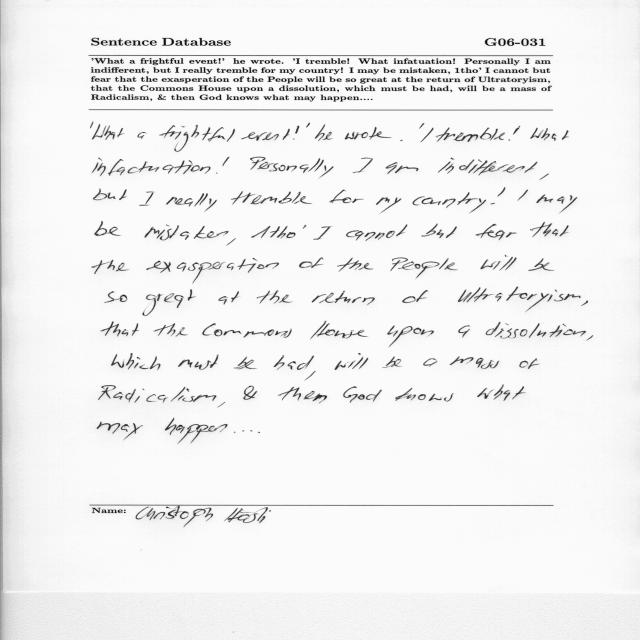 Sentence Database G06-031
'What a frightful event!' he wrote. 'I tremble! What infatuation! Personally I am
indifferent, but I really tremble for my country! I may be mistaken, 1tho' I cannot but
fear that the exasperation of the People will be so great at the return of Ultratoryism,
that the Commons House upon a dissolution, which must be had, will be a mass of
Radicalism, & then God knows what may happen....
'What a frightful event!' he wrote. 'I tremble! What
infactuation! Personally I am indifferent,
but I really tremble for my country! I may
be mistaken, 1tho' I cannot but fear that
the exasperation of the People will be
so great at the return of Ultratoryism,
that the Commons House upon a dissolution,
which must be had, will be a mass of
Radicalism, & then God knows what
may happen....
Name: Christoph